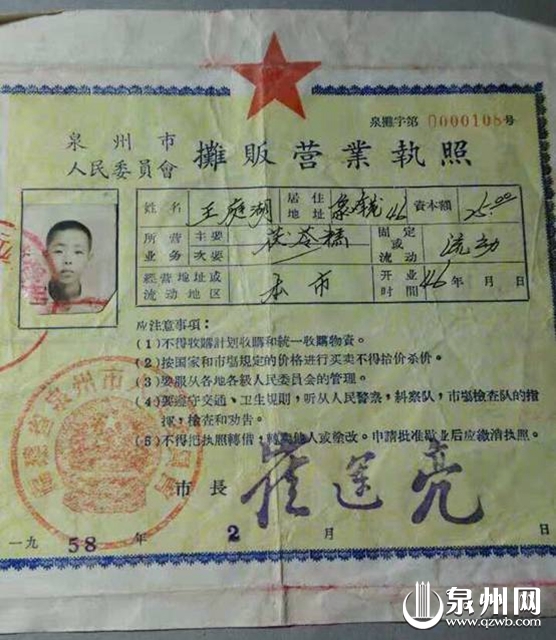 泉攤字第0000108号
泉州市
人民委員會
攤販营業執照
姓名 王庭湖 居住地址 46 資本額 25.00
所营主要 茯苓糕 固定
业务次要 或流动 流动
經营地址或 本市 开业 46年 月 日
流动地区 時間
应注意事項：
(1)不得收購計划收購和統一收購物資。
(2)按国家和市塲規定的价格进行买卖不得抬价杀价。
(3)要服从各地各級人民委員会的管理。
(4)要遵守交通、卫生規則，听从人民警察，糾察队，市塲檢查队的指
揮，檢查和劝告。
(5)不得把执照轉借，轉 他人或塗改。申請批准歇业后应繳消执照。
福建省泉州市
市長 崔運亮
一九58年 2月 日
泉州网
www.qzwb.com